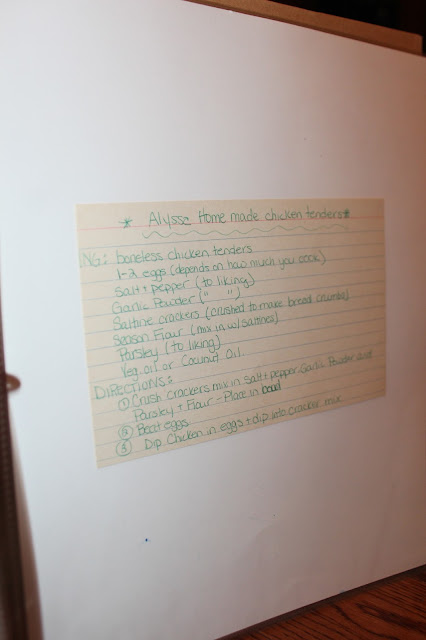 * Alyssa Home made chicken tenders *
ING: boneless chicken tenders
1-2 eggs (depends on how much you cook)
Salt + pepper (to liking)
Garlic Powder (" ")
Saltine crackers (crushed to make bread crumbs)
Season Flour (mix in w/ saltines)
Parsley (to liking)
Veg. oil or Coconut Oil.
DIRECTIONS:
① Crush crackers mix in salt + pepper, Garlic Powder and
Parsley + Flour - Place in bowl
② Beat eggs
③ Dip Chicken in eggs + dip into cracker mix